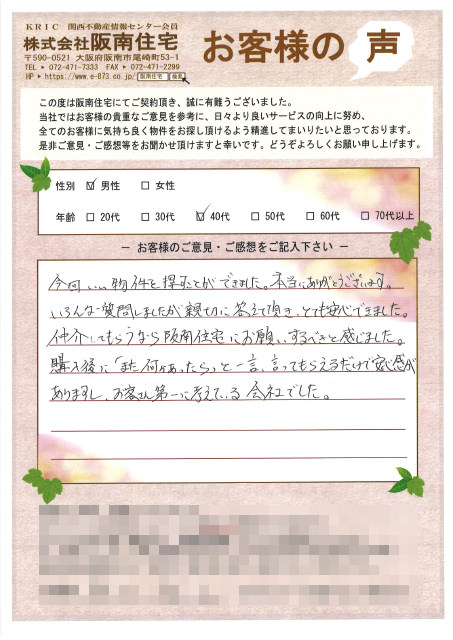 KRIC 関西不動産情報センター会員
株式会社阪南住宅
〒590-0521 大阪府阪南市尾崎町53-1
TEL ▶ 072-471-7333 FAX ▶ 072-471-2299
HP ▶ https://www.e-873.co.jp/ 阪南住宅 検索
お客様の声
この度は阪南住宅にてご契約頂き、誠に有難うございました。
当社ではお客様の貴重なご意見を参考に、日々より良いサービスの向上に努め、
全てのお客様に気持ち良く物件をお探し頂けるよう精進してまいりたいと思っております。
是非ご意見・ご感想等をお聞かせ頂けますと幸いです。どうぞよろしくお願い申し上げます。
性別 ☑ 男性 □ 女性
年齢 □ 20代 □ 30代 ☑ 40代 □ 50代 □ 60代 □ 70代以上
― お客様のご意見・ご感想をご記入下さい ―
今回いい物件を探すことができました。本当にありがとうございます。
いろんな質問しましたが親切に答えて頂き、とても安心できました。
仲介してもらうなら阪南住宅にお願いするべきと感じました。
購入後に「また何かあったら」と一言、言ってもらえるだけで安心感が
ありますし、お客さん第一に考えている会社でした。